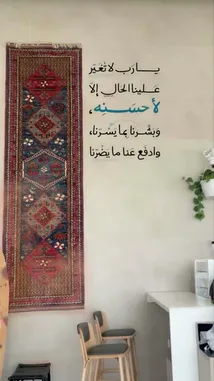 يارب لا تُغيّر
علينا الحال إلا
لأحسَنِه،
وَبشّرنا بِما يَسُرّنا،
وادفَع عَنا ما يضُرّنا